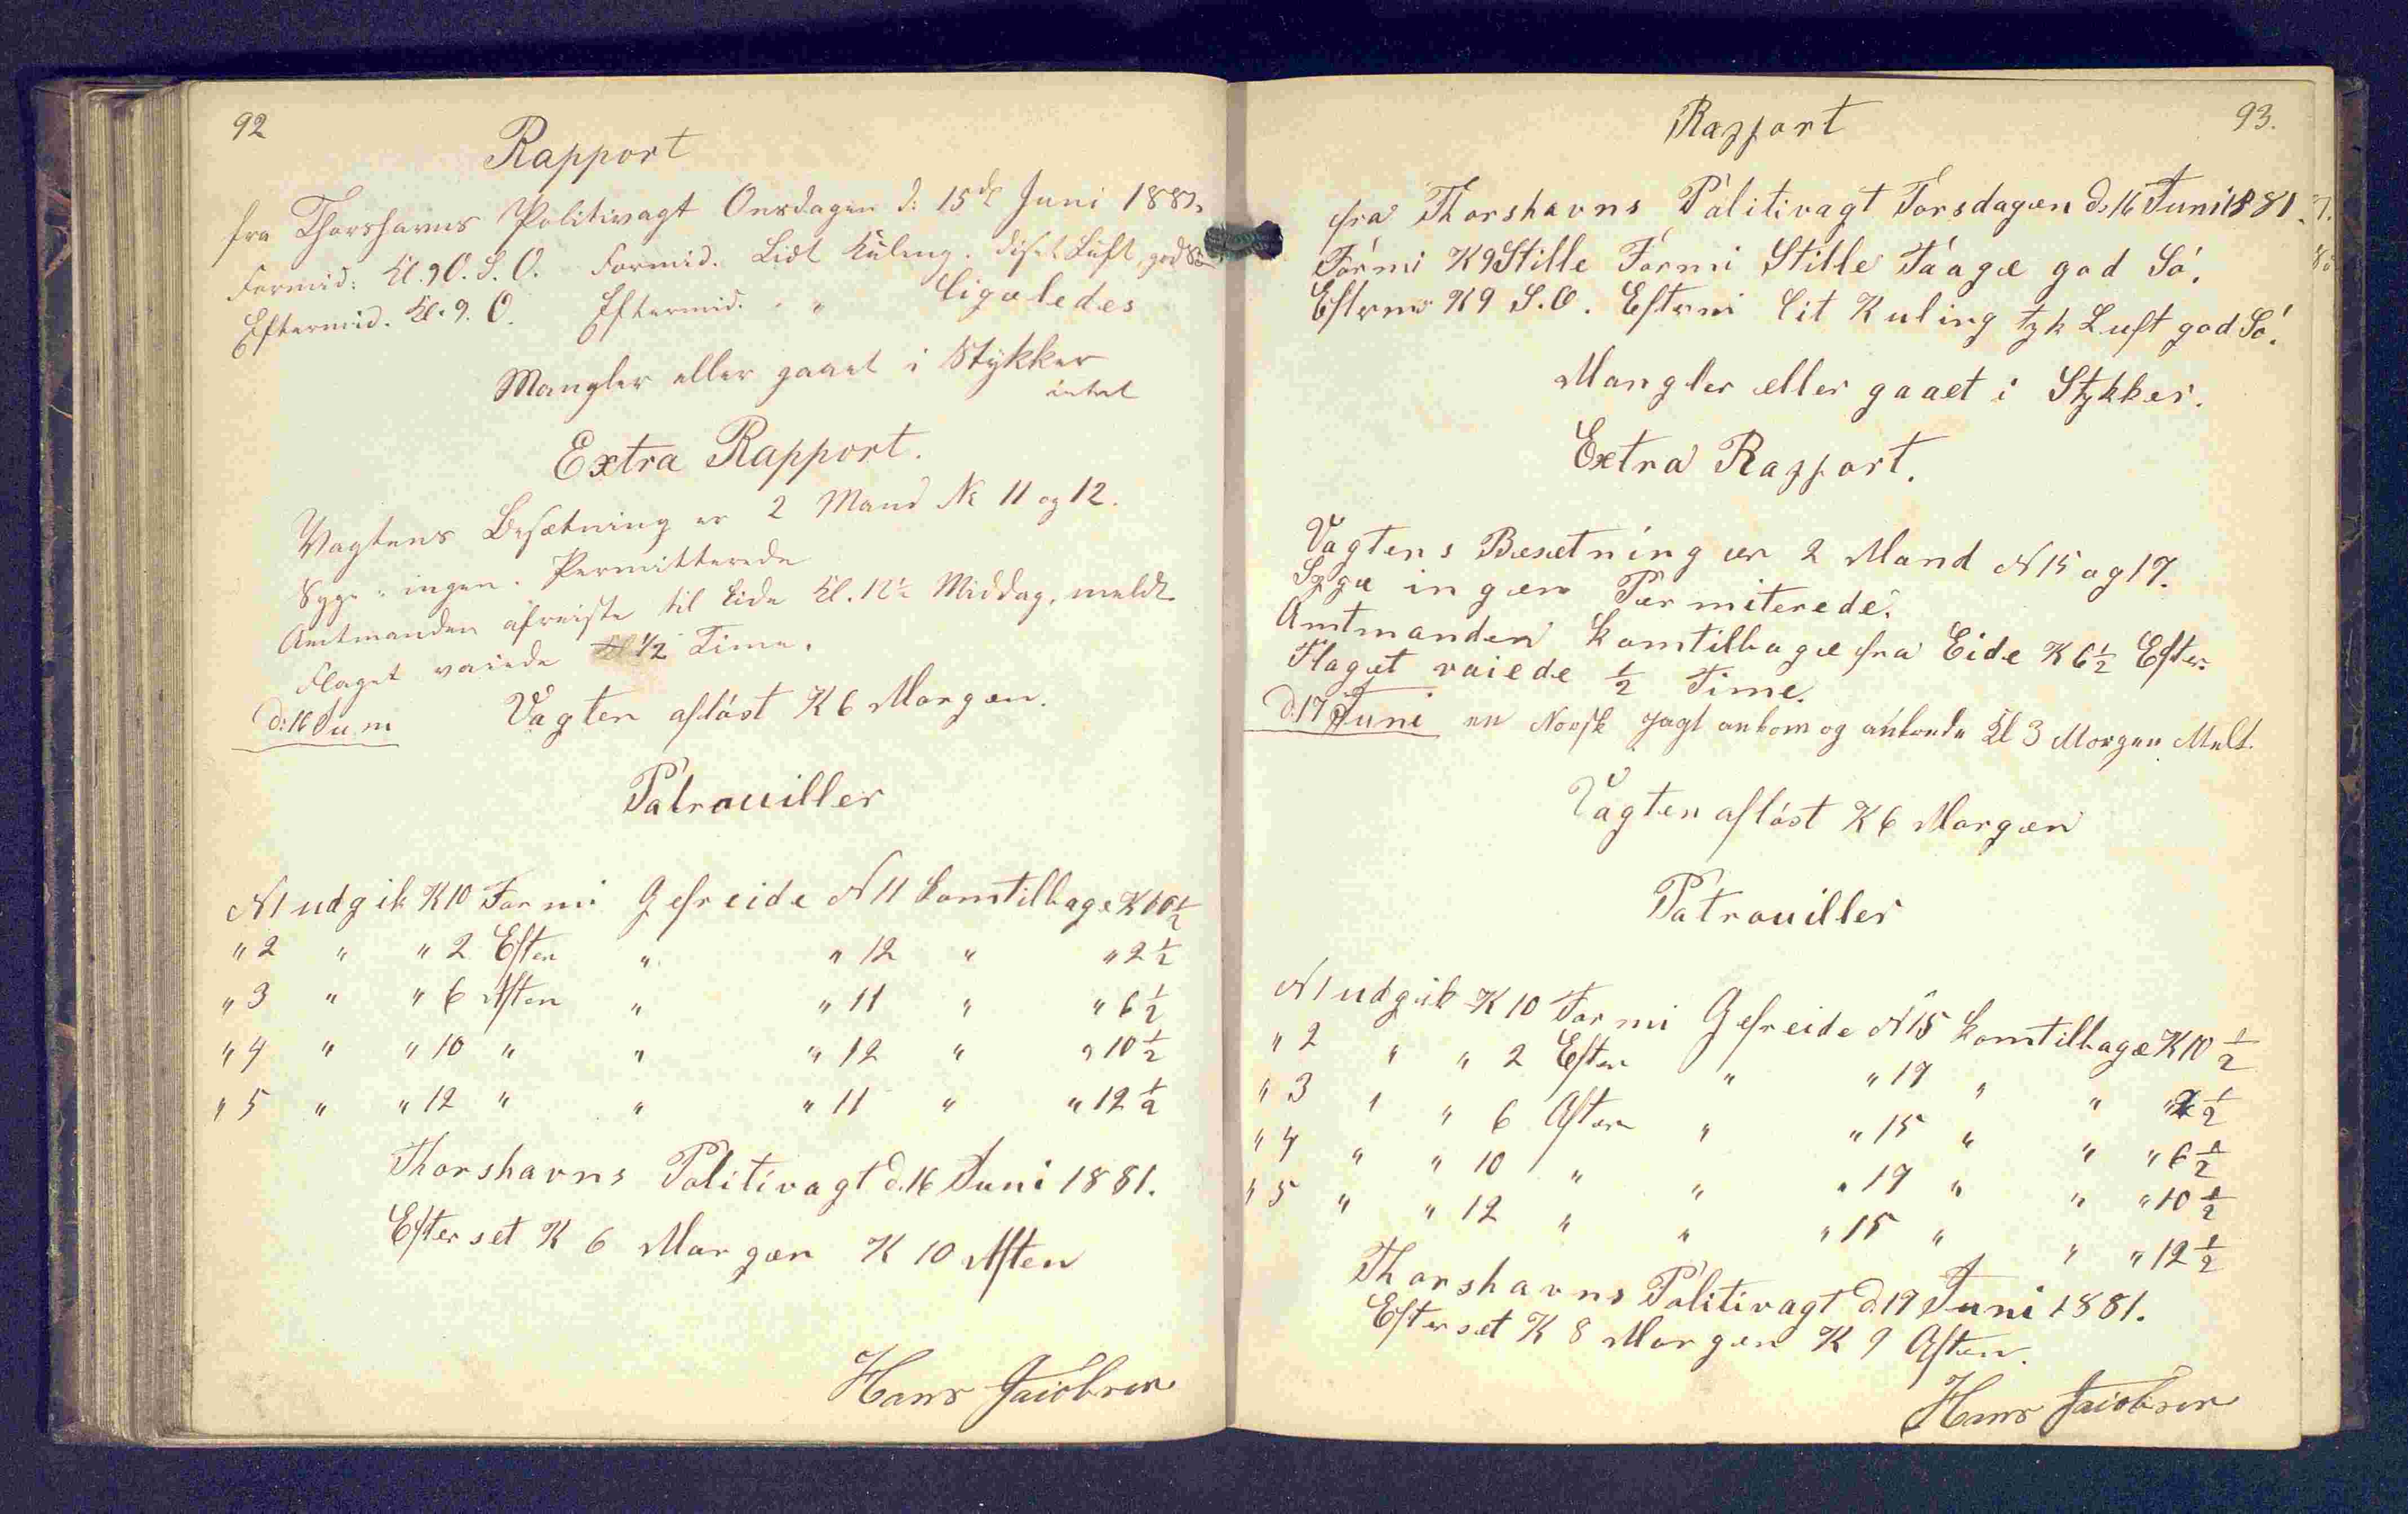 92
Rapport
fra Thorshavns Politivagt Onsdagen d: 15de Juni 1881.
Formid: Kl. 9 O. S. O. Formid. Lidt Kuling. diset Luft, god Sø
Eftermid. Kl. 9. O. Eftermid. " " ligeledes
Mangler eller gaaet i Stykker
intet
Extra Rapport.
Vagtens Besætning er 2 Mand No 11 og 12.
Syge: ingen. Permitterede
Amtmanden afreiste til Eide Kl. 12½ Middag, meldt.
Flaget vaiede ½ Time.
d: 16 Juni Vagten afløst K 6 Morgen.
Patrouiller
N 1 udgik K 10 Formi Gefreide N 11 kom tilbage K 10½
" 2 " " 2 Efter " " 12 " " 2½
" 3 " " 6 Aften " " 11 " " 6½
" 4 " " 10 " " " 12 " " 10½
" 5 " " 12 " " " 11 " " 12½
Thorshavns Politivagt d. 16 Juni 1881.
Efterset K 6 Morgen K 10 Aften
Hans Jaicobsen
93.
Rapport
fra Thorshavns Politivagt Torsdagen d. 16 Juni 1881.
Formi K 9 Stille Formi Stille Taage god Só.
Efterm K 9 S. O. Eftermi lit Kuling tyk Luft god Só.
Mangler eller gaaet i Stykker.
Extra Rapport.
Vagtens Besætning er 2 Mand N 15 og 17.
Syge ingen Permiterede.
Amtmanden kom tilbage fra Eide K 6½ Efter.
Flaget vaiede ½ Time.
d. 17 Juni en Norsk Jagt ankom og ankrede Kl 3 Morgen Melt.
Vagten aflóst K 6 Morgen
Patrouiller
N 1 udgik K 10 Formi Gefreide N 15 kom tilbage K 10½
" 2 " " 2 Efter " " 17 " " " 2½
" 3 " " 6 Aften " " 15 " " " 6½
" 4 " " 10 " " " 17 " " " 10½
" 5 " " 12 " " " 15 " " " 12½
Thorshavns Politivagt d 17 Juni 1881.
Efterset K 8 Morgen K 9 Aften.
Hans Jaicobsen